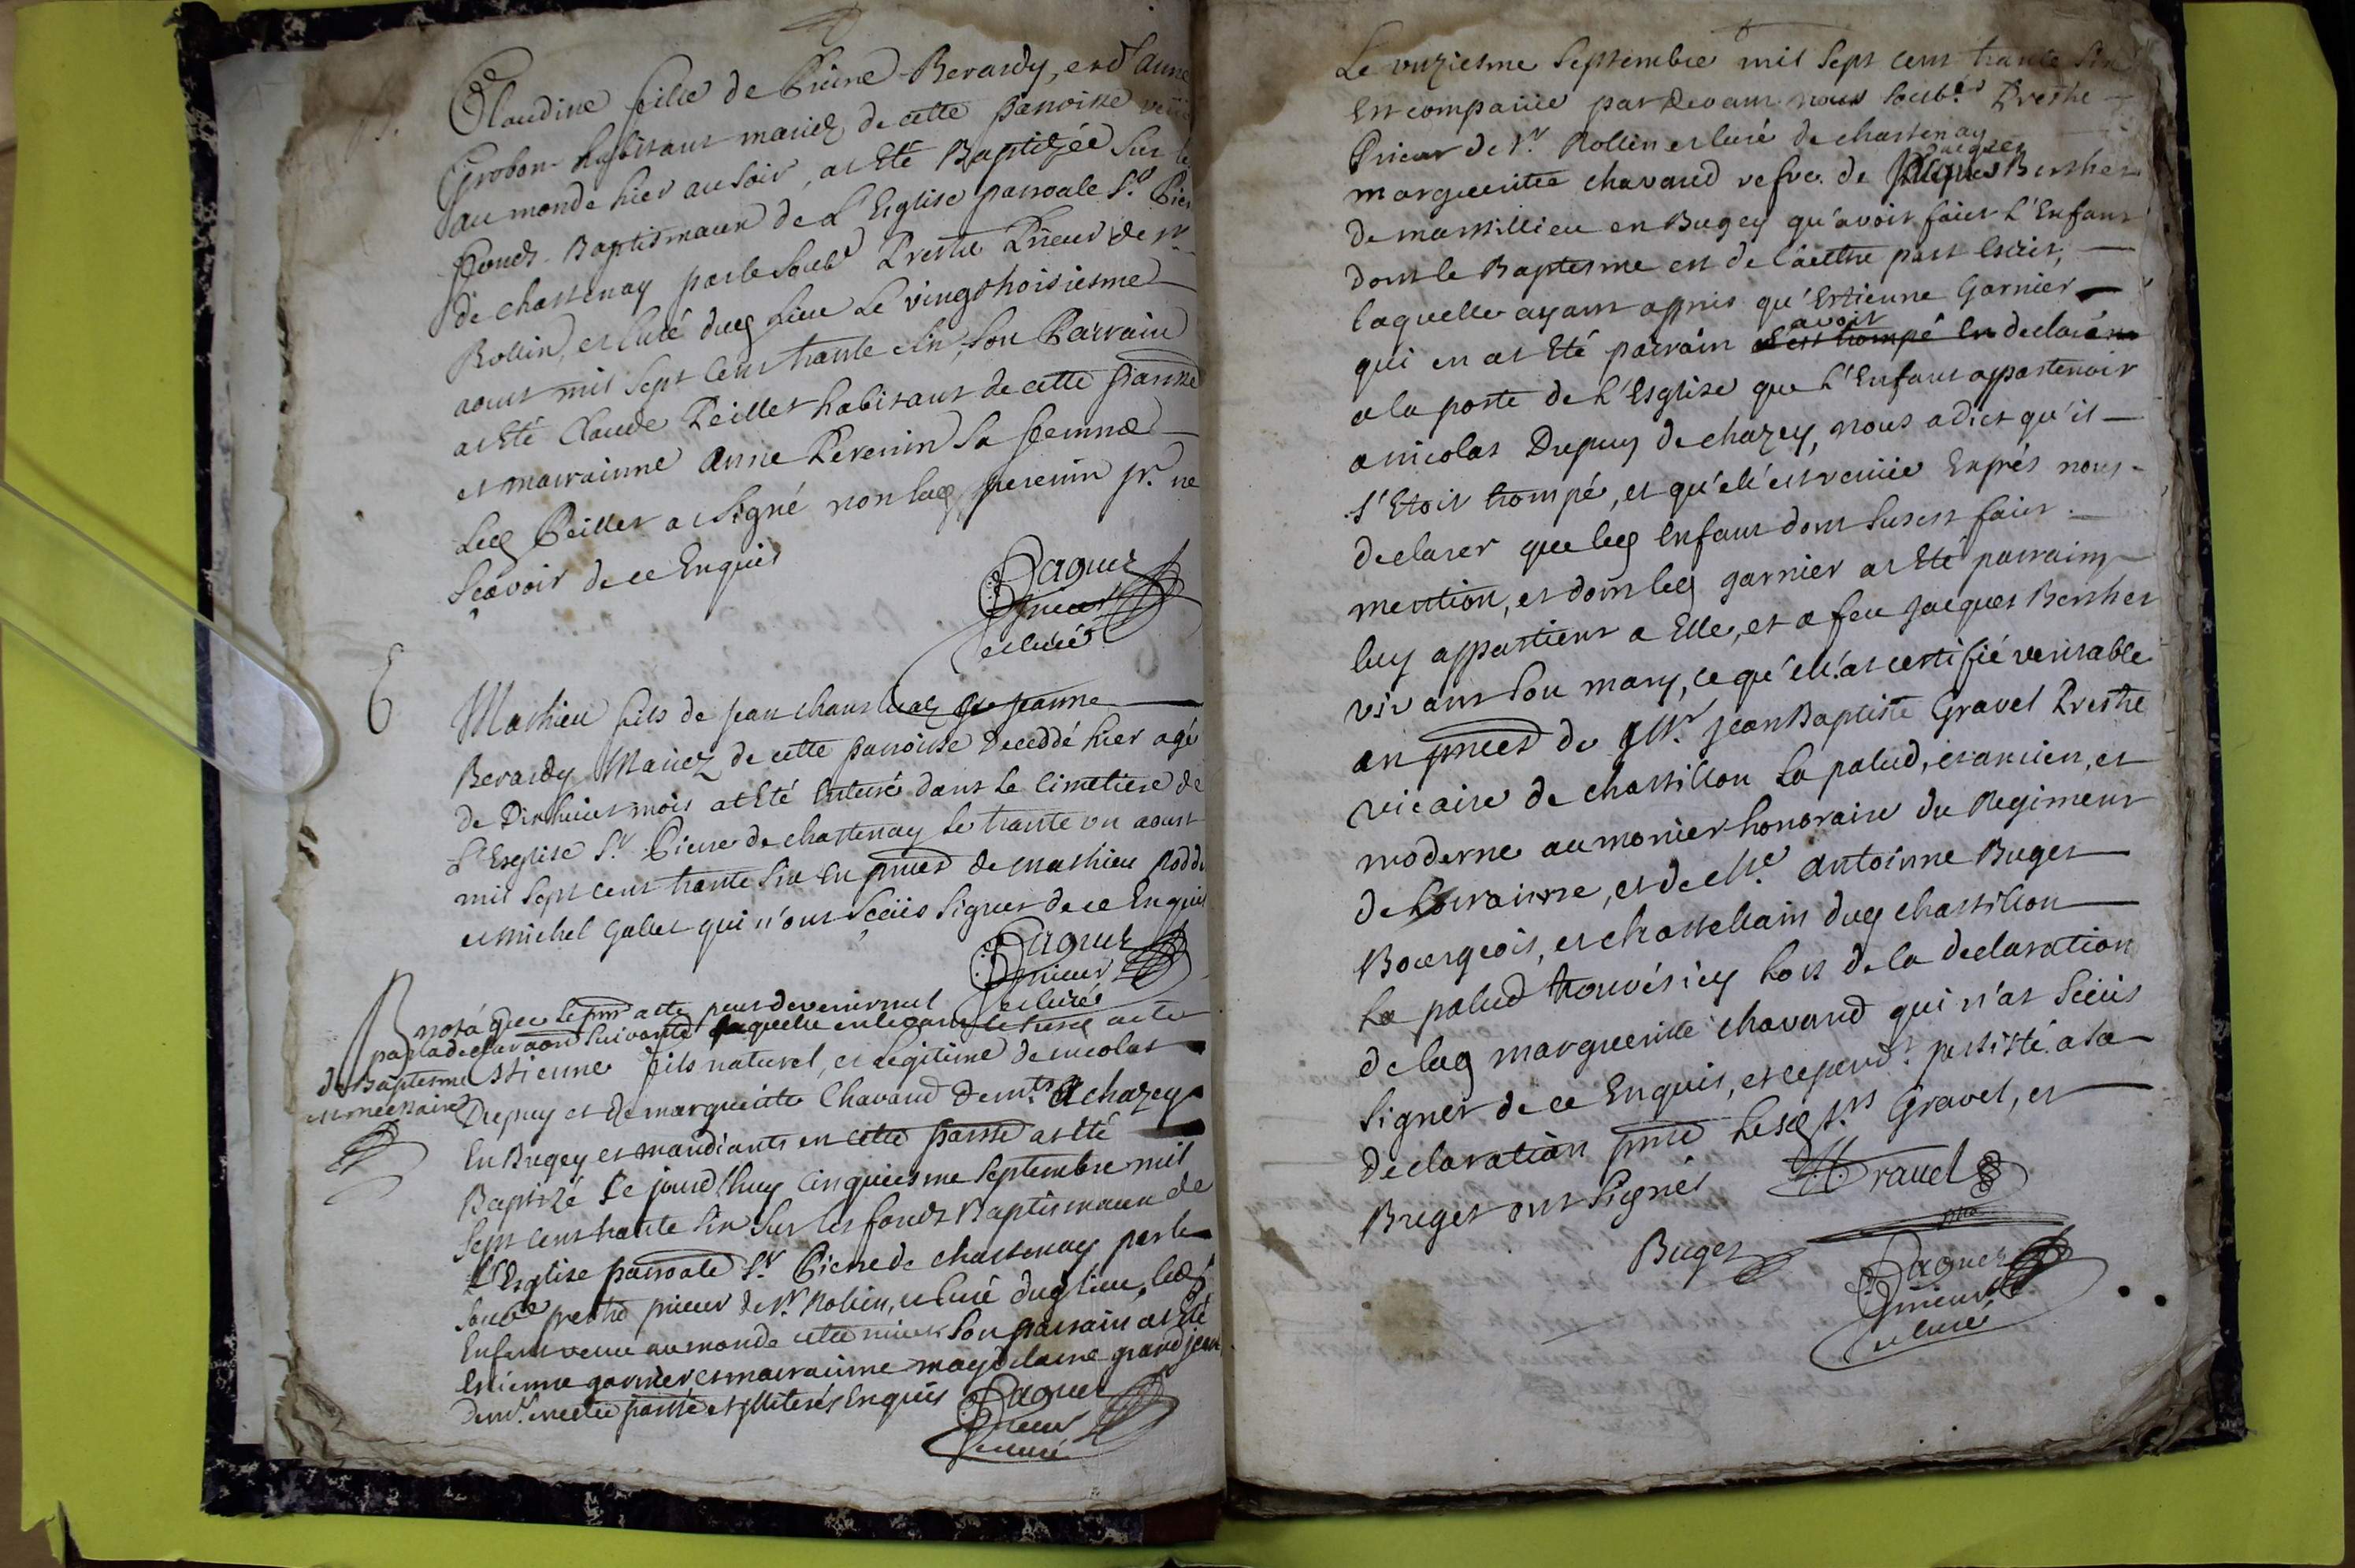 Claudine fille de Pierre Berardy, et d'anne
Grobon habitans mariez de cette parroisse
au monde hier au soir, at Eté Baptizée sur les
fonds Baptismaux de L'Esglise parroale St. Pierre
de chastenay par le soubné Prestre Prieur de St
Rollin, et Curé dud lieu Le vingthoisiesme
aoust mil sept cens trante six, son Parrain
at Eté Claude Peillet habitant de cette parrsse
et marrainne anne Perenin sa femme
Led Peillet at signé non lad perenin pr. ne
sçavoir de ce Enquis
Paquet
prieur
et curé
Mathieu fils de jean et de jeanne
Berardy Mariez de cette parroisse deceddé hier agé
de Dixhuict mois at Eté Enterré dans Le Cimetiere de
L'Esglise St. Pierre de chastenay Le trante un aoust
mil sept cens trante six En pnces de Mathieu
et Michel Gallet qui n'ont sceüs signer de ce Enquis
Paquet
prieur
et curé
nota que le pnt acte peut devenir nul
par la declaraon suivante
de Baptesme
est necessaire
Estienne fils naturel, et legitime de nicolas
Dupuy et de margueritte Chavand demts a chazey
En Bugey et mandiants en cette parrsse at Eté
Baptizé Ce jourd'huy cinquiesme septembre mil
sept cens trante six sur les fonds Baptismaux de
L'Esglise parroale St. Pierre de chastenay par le
soubné prestre prieur de St. Rolin, et curé dud lieu, led
Enfant venu au monde cette nuict son parrain at Eté
Estienne garnier et marrainne magdelaine grandjean
demt. en cette parrsse et illiterés Enquis
Paquet
prieur
et curé
Le unziesme septembre mil sept cens trante six
Est comparüe par devant nous soubné Prestre
Prieur de St. Rollin et curé de chastenay
jacques
margueritte chavand vefve de Berthet
de marsillieu en Bugey qu'avoit faict L'Enfant
dont le Baptesme est de l'autre part Escrit,
laquelle ayant appris qu'Estienne Garnier
avoit
qui en at Eté parrain s'est trompé En declaré
a la porte de L'Esglise que L'Enfant appartenoit
a nicolas Dupuy de chazey, nous a dict qu'il
s'Etoit trompé, et qu'ell'est venüe Exprés nous
declarer que led Enfant dont sus est faict
mention, et dont led garnier at Eté parrain
luy appartient a Elle, et a feu jacques Berthet
vivant son mary, ce qu'ell'at certifié veritable
en pnces de Mre. jean Baptiste Gravel Prestre
vicaire de chastillon La palud, et ancien, et
moderne aumonier honoraire du Regiment
de Lorrainne, et de Me. antoinne Buget
Bourgeois, et chastellain dud chastillon
La palud trouvés icy lors de la declaration
de lad margueritte chavand qui n'at sceüs
signer de ce Enquis, et cepend. persisté a sa
declaration pnte Lesd srs Gravel, et
Buget ont signés
Gravel
ptre
Buget
Paquet
prieur
et curé